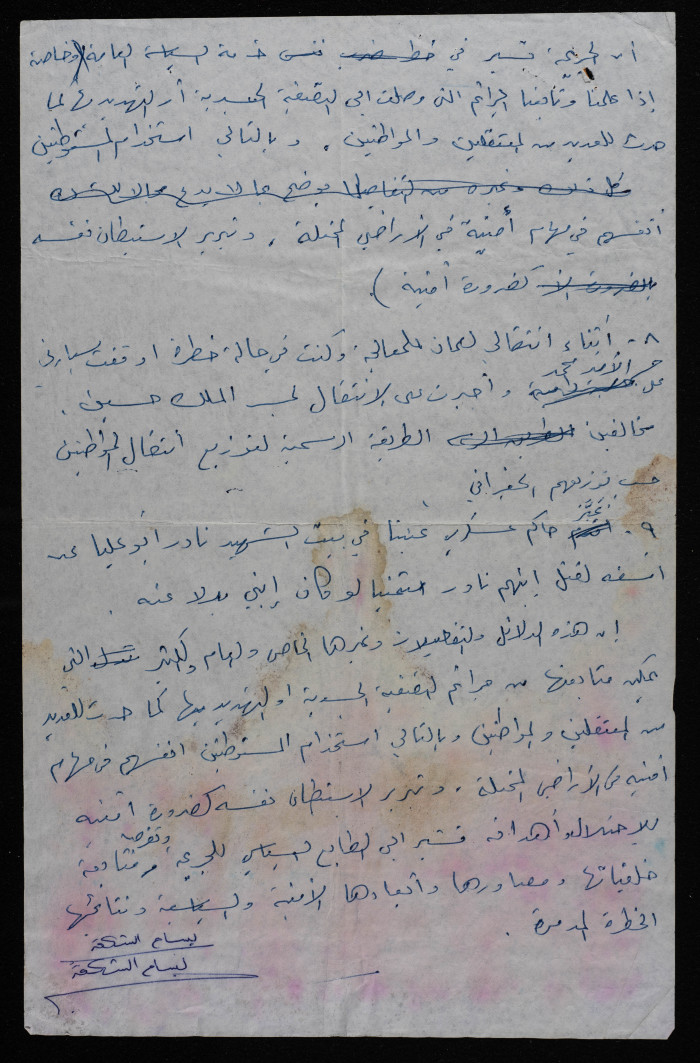 أن الجريمة تسير في خط نفس خدمة السياسة العامة (وخاصة
إذا علمنا وتابعنا الجرائم التي وصلت الى التصفية الجسدية أو التهديد بها كما
حدث للعديد من المعتقلين والمواطنين . وبالتالي استخدام المستوطنين
كل ذلك وغيره من التفاصيل يوضح بما لا يدع مجالا للشك
أنفسهم في مهام أمنية في الأراضي المحتلة . وتبرير الاستيطان نفسه
كضرورة أمنية ) .
٨ - أثناء انتقالي لعمان للمعالجة وكنت في حالة خطرة اوقفت سيارتي
على جسر الأمير محمد وأجبرت على الانتقال لجسر الملك حسين .
مخالفين الطريقة الرسمية لتوزيع أنتقال المواطنين
حسب توزيعهم الجغرافي
٩ - عبّر حاكم عسكري عنبتا في بيت الشهيد نادر أبو عليا عن
اسفه لقتل ابنهم نادر متمنيا لو كان إبني بدلا عنه .
إن هذه الدلائل والتفصيلات وغيرها الخاص والعام والكثير التي
يمكن متابعتها من جرائم التصفية الجسدية او التهديد بها كما حدث للعديد
من المعتقلين والمواطنين وبالتالي استخدام المستوطنين انفسهم في مهام
أمنية في الأراضي المحتلة . وتبرير الاستيطان نفسه كضرورة أمنية
للاحتلال وأهدافه تشير الى الطابع السياسي للجريمة وتفرض متابعة
خلفياتها ومصادرها وأبعادها الأمنية والسياسية ونتائجها
الخطرة المدمرة .
بسام الشكعة
بسام الشكعة